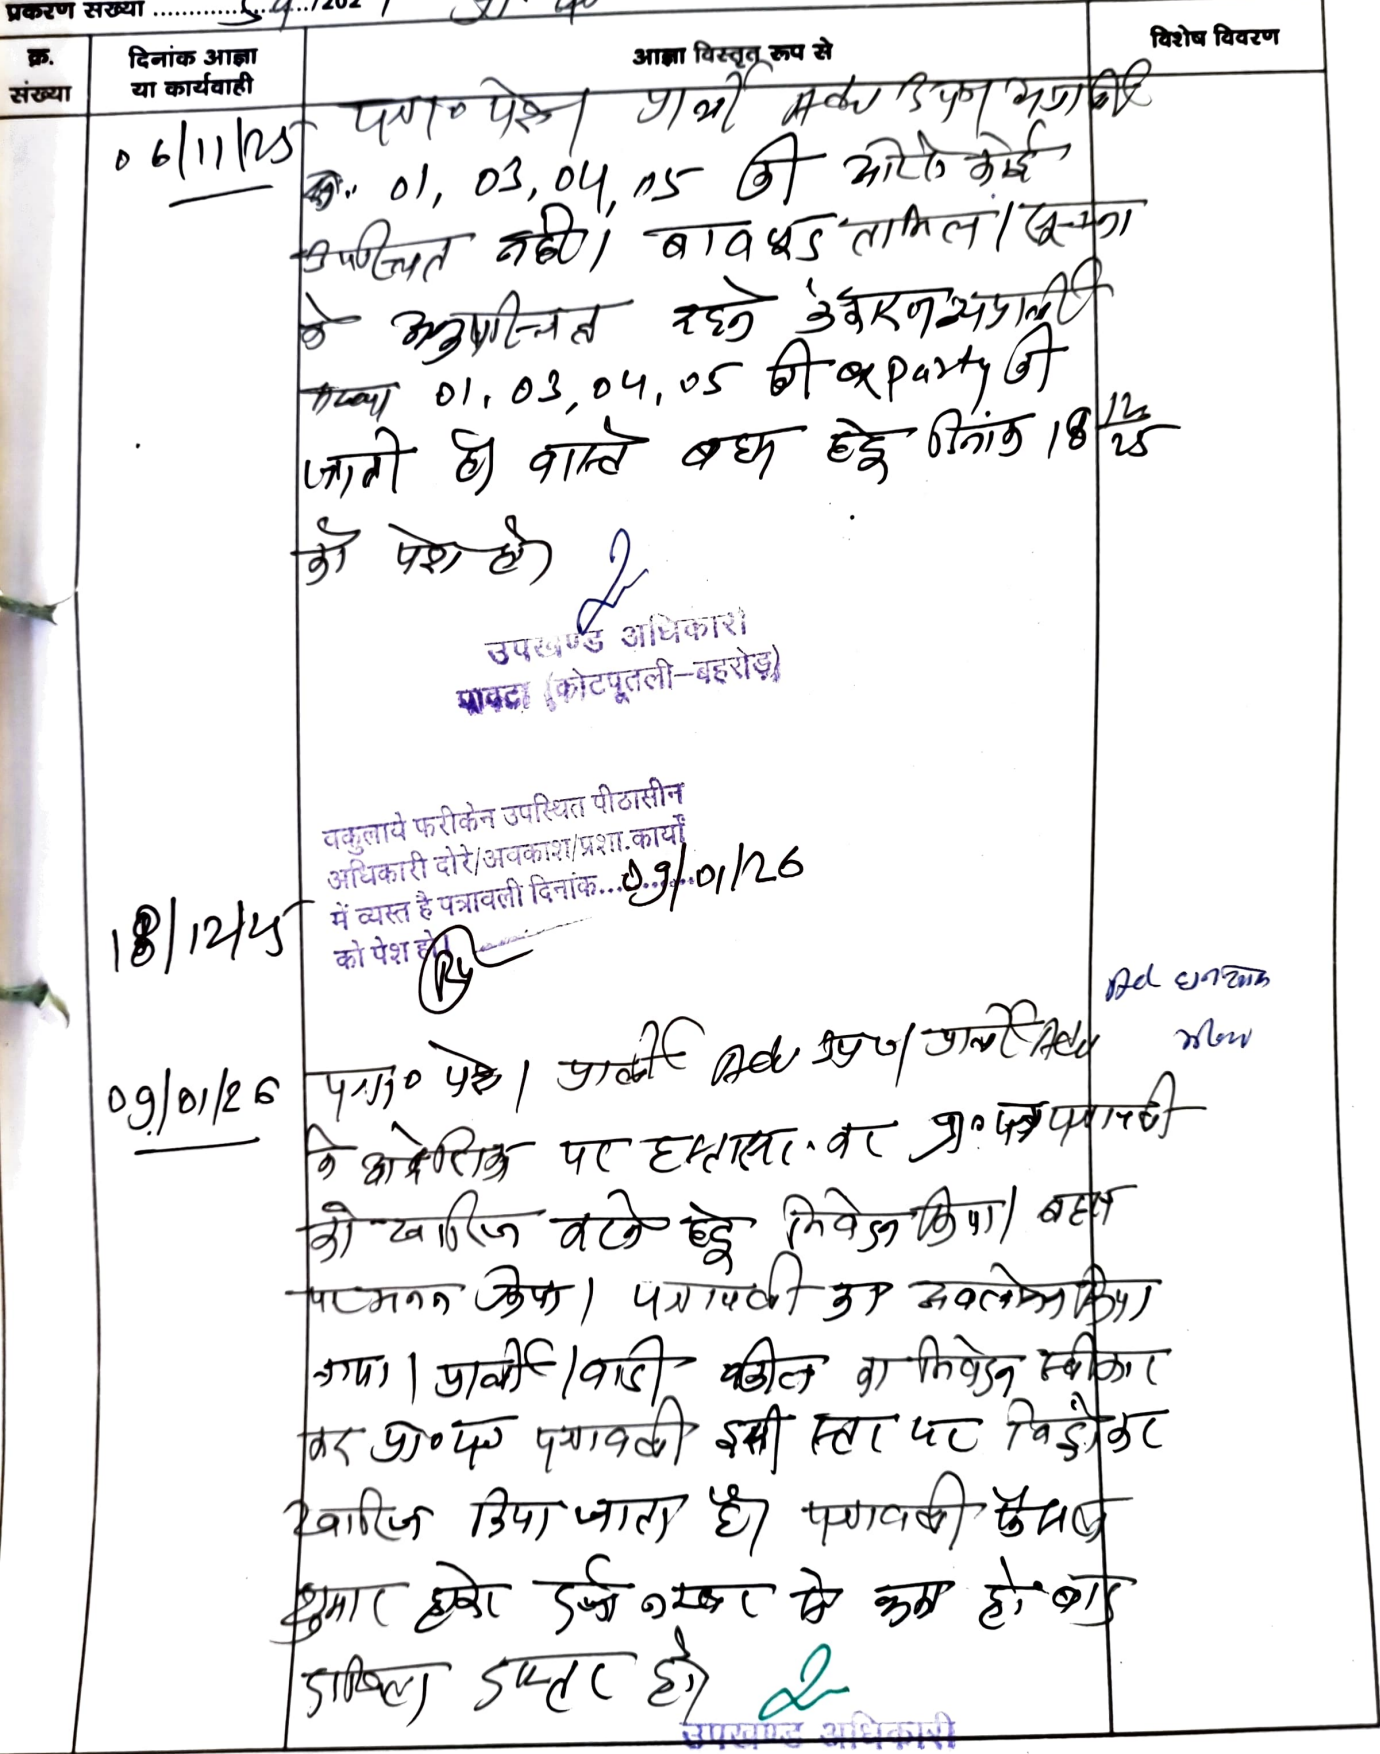 प्रकरण संख्या ............../202
क्र. संख्या
दिनांक आज्ञा या कार्यवाही
आज्ञा विस्तृत रूप से
विशेष विवरण
06/11/25
पत्रा० पेश। प्रार्थी Adv उपo अप्रार्थी
क्र. 01, 03, 04, 05 की ओर से कोई
उपस्थित नहीं। बावजूद तामिल/सूचना
के अनुपस्थित रहने के कारण अप्रार्थी
संख्या 01, 03, 04, 05 की exparty की
जाती है। वास्ते बहस हेतु दिनांक 18/12/25
को पेश हो।
उपखण्ड अधिकारी
पावटा (कोटपूतली-बहरोड़)
18/12/25
वकुलाये फरीकेन उपस्थित पीठासीन
अधिकारी दोरे/अवकाश/प्रशा.कार्यों
में व्यस्त है पत्रावली दिनांक...09/01/26
को पेश हो।
Ad घनश्याम
09/01/26
पत्रा० पेश। प्रार्थी Adv उप०। प्रार्थी Adv
ने आदेशिका पर हस्ताक्षर कर प्रा० पत्र पत्रावली
को खारिज करने हेतु निवेदन किया। बहस
पर मनन किया। पत्रावली का अवलोकन किया
गया। प्रार्थी/वादी वकील का निवेदन स्वीकार
कर प्रा० पत्र पत्रावली इसी स्तर पर विड्रो कर
खारिज किया जाता है। पत्रावली फैसल
शुमार होकर दर्ज नम्बर से कम हो बाद
दाखिल दफ्तर हो।
उपखण्ड अधिकारी